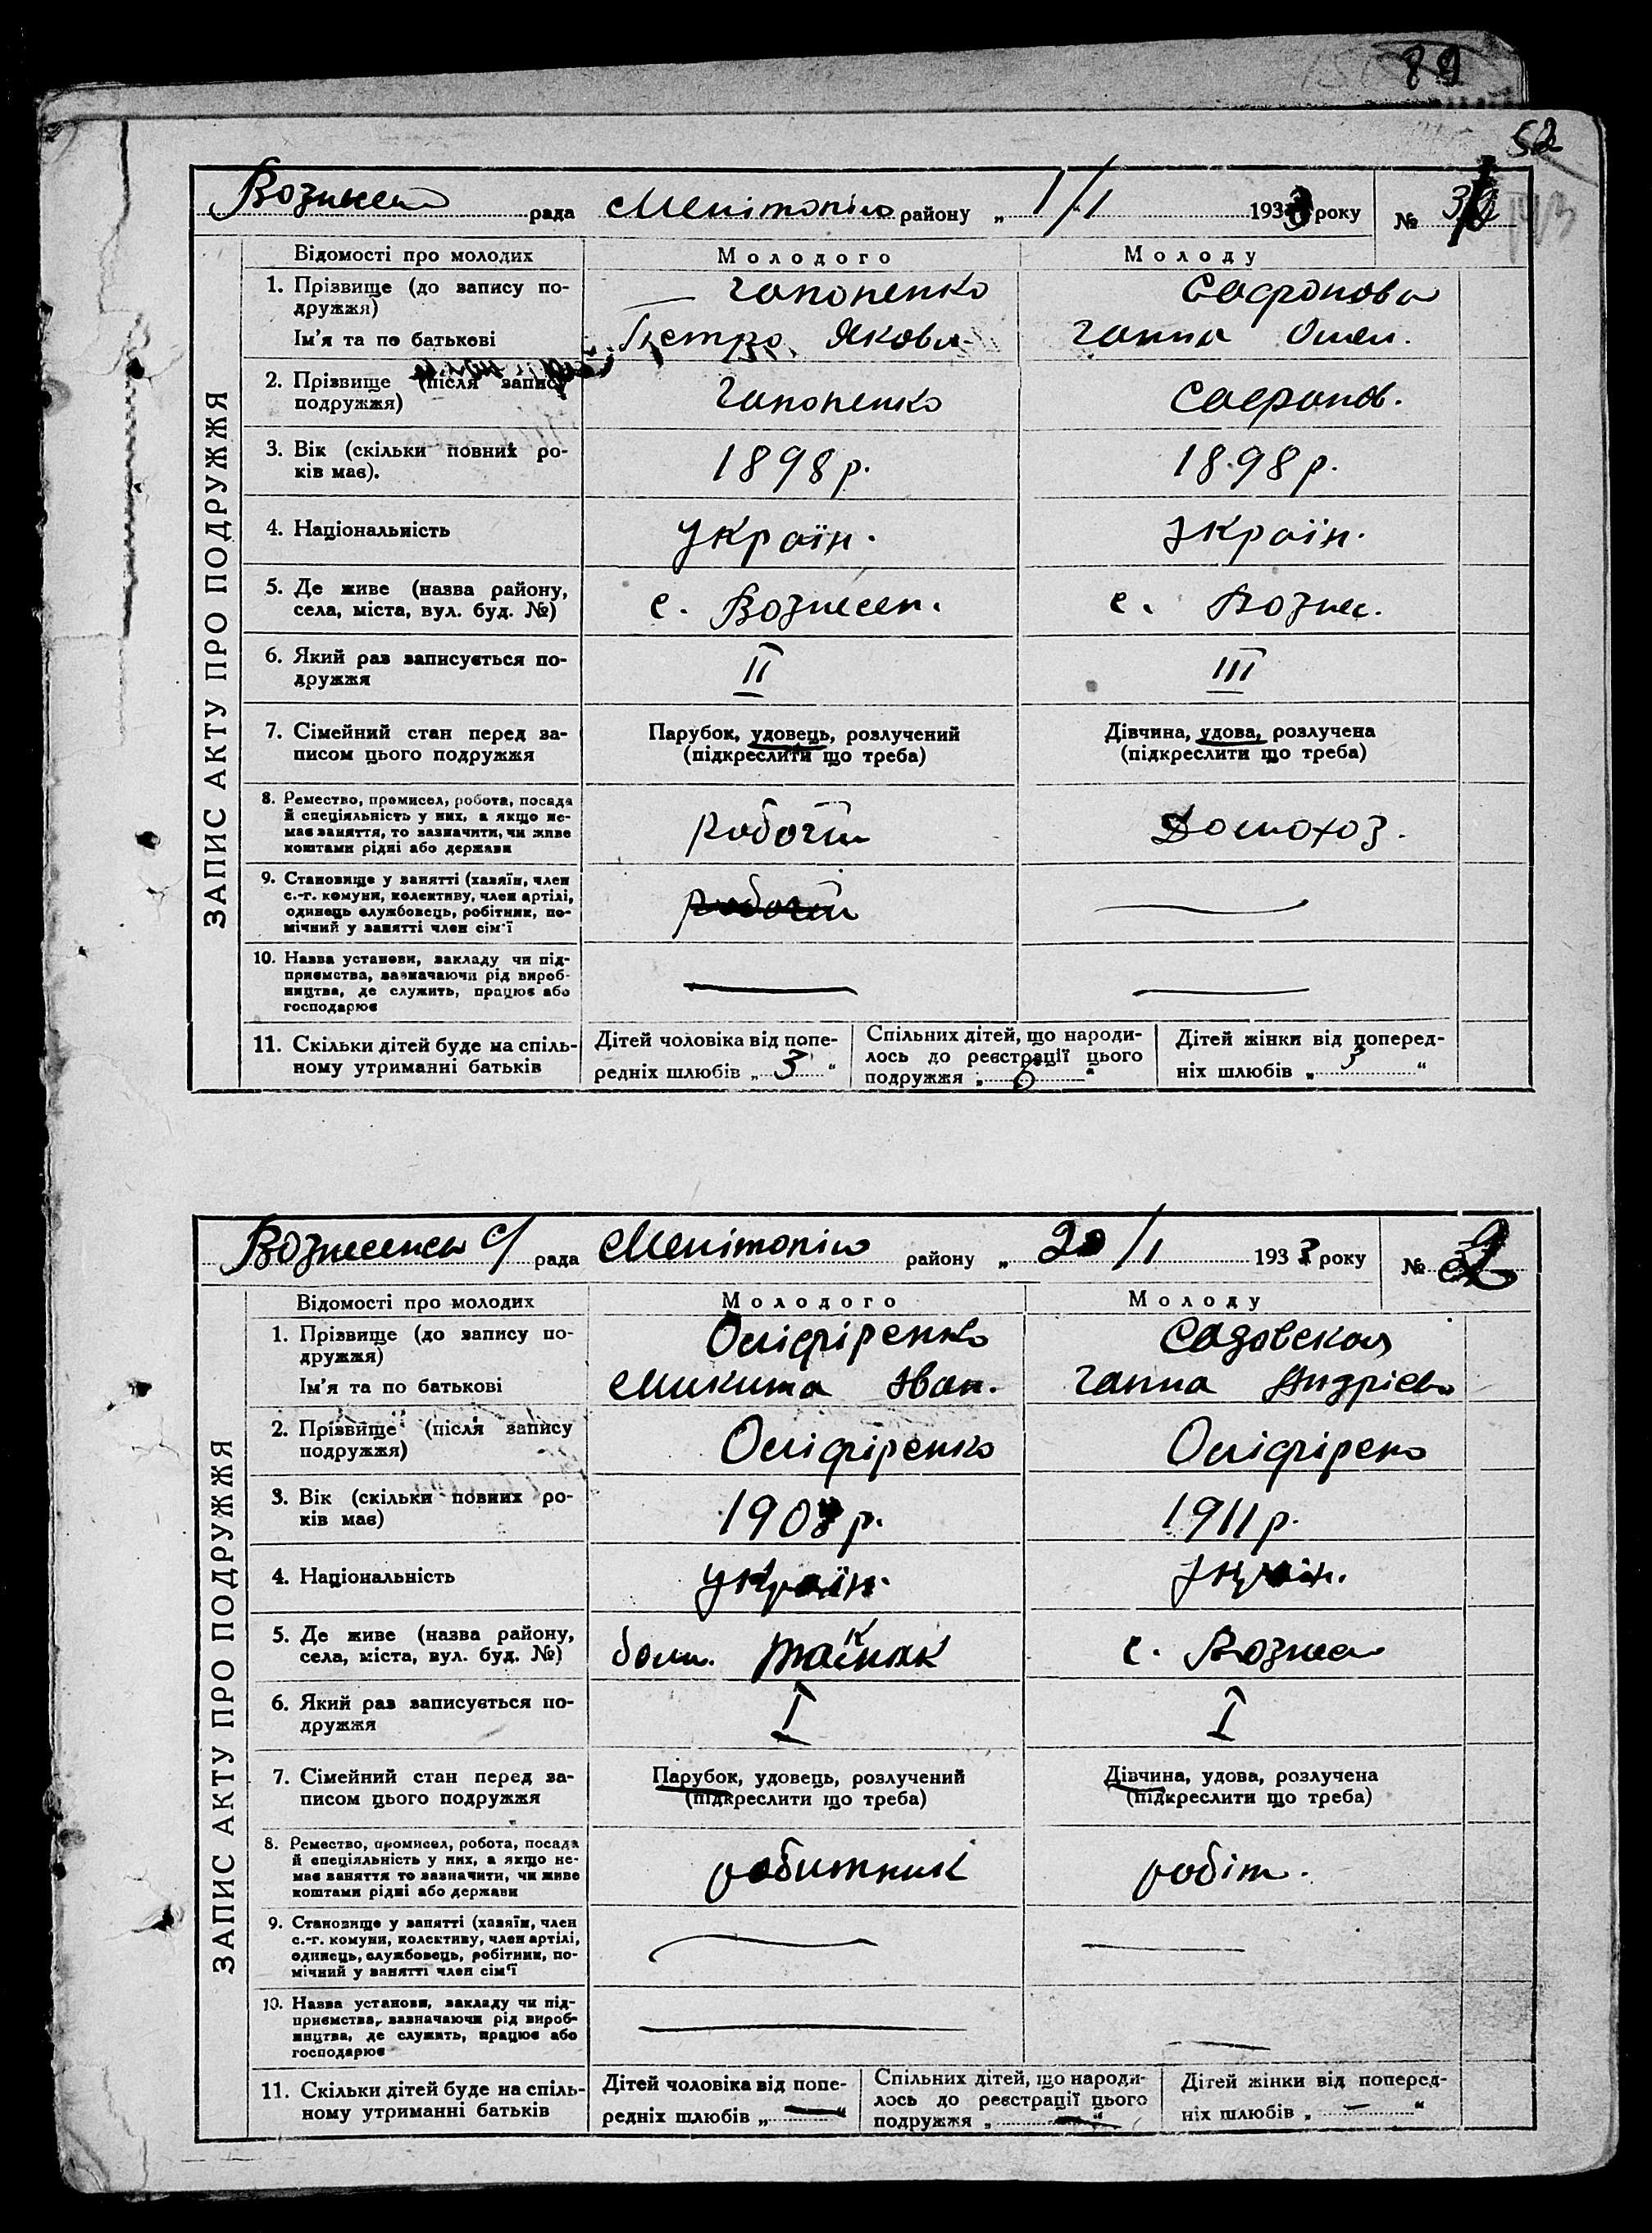 89
52
Вознесен рада Мелітопіль району „ 1/1 1933 року №
ЗАПИС АКТУ ПРО ПОДРУЖЖЯ
Відомості про молодих Молодого Молоду
1. Прізвище (до запису по- Гапоненко Сафронова
дружжя)
Ім'я та по батькові Петро Якови Ганна Омел.
2. Прізвище (після запису Гапоненко Сафронов.
подружжя)
3. Вік (скільки повних ро- 1898 р. 1898 р.
ків має).
4. Національність україн. україн.
5. Де живе (назва району, с. Вознесен. с. Вознес.
села, міста, вул. буд. №)
6. Який раз записується по- II III
дружжя
7. Сімейний стан перед за- Парубок, удовець, розлучений Дівчина, удова, розлучена
писом цього подружжя (підкреслити що треба) (підкреслити що треба)
8. Ремество, промисел, робота, посада
й спеціяльність у них, а якщо не- робочій Домохоз.
має заняття, то зазначити, чи живе
коштами рідні або держави
9. Становище у занятті (хазяїн, член
с.-г. комуни, колективу, член артілі, робочій
одинець службовець, робітник, по-
мічний у занятті член сім'ї
10. Назва установи, закладу чи під-
приємства, зазначаючи рід вироб-
ництва, де служить, працює або
господарює
11. Скільки дітей буде на спіль- Дітей чоловіка від попе- Спільних дітей, що народи- Дітей жінки від поперед-
ному утриманні батьків редніх шлюбів „ 3 “ лось до реєстрації цього ніх шлюбів „ 3 “
подружжя „ 0 “
Вознесенсь с/ рада Мелітопіль району „ 20/1 1933 року № 2
ЗАПИС АКТУ ПРО ПОДРУЖЖЯ
Відомості про молодих Молодого Молоду
1. Прізвище (до запису по- Оліфіренко Садовская
дружжя)
Ім'я та по батькові Микита Іван. Ганна Андрієв
2. Прізвище (після запису Оліфіренко Оліфірено
подружжя)
3. Вік (скільки повних ро- 1903 р. 1911 р.
ків має)
4. Національність україн. україн.
5. Де живе (назва району, с. Вознес
села, міста, вул. буд. №)
6. Який раз записується по- I I
дружжя
7. Сімейний стан перед за- Парубок, удовець, розлучений Дівчина, удова, розлучена
писом цього подружжя (підкреслити що треба) (підкреслити що треба)
8. Ремество, промисел, робота, посада
й спеціяльність у них, а якщо не- робитник робіт.
має заняття то зазначити, чи живе
коштами рідні або держави
9. Становище у занятті (хазяїн, член
с.-г. комуни, колективу, член артілі,
одинець, службовець, робітник, по-
мічний у занятті член сім'ї
10. Назва установи, закладу чи під-
приємства, зазначаючи рід вироб-
ництва, де служить, працює або
господарює
11. Скільки дітей буде на спіль- Дітей чоловіка від попе- Спільних дітей, що народи- Дітей жінки від поперед-
ному утриманні батьків редніх шлюбів „ — “ лось до реєстрації цього ніх шлюбів „ — “
подружжя „ — “